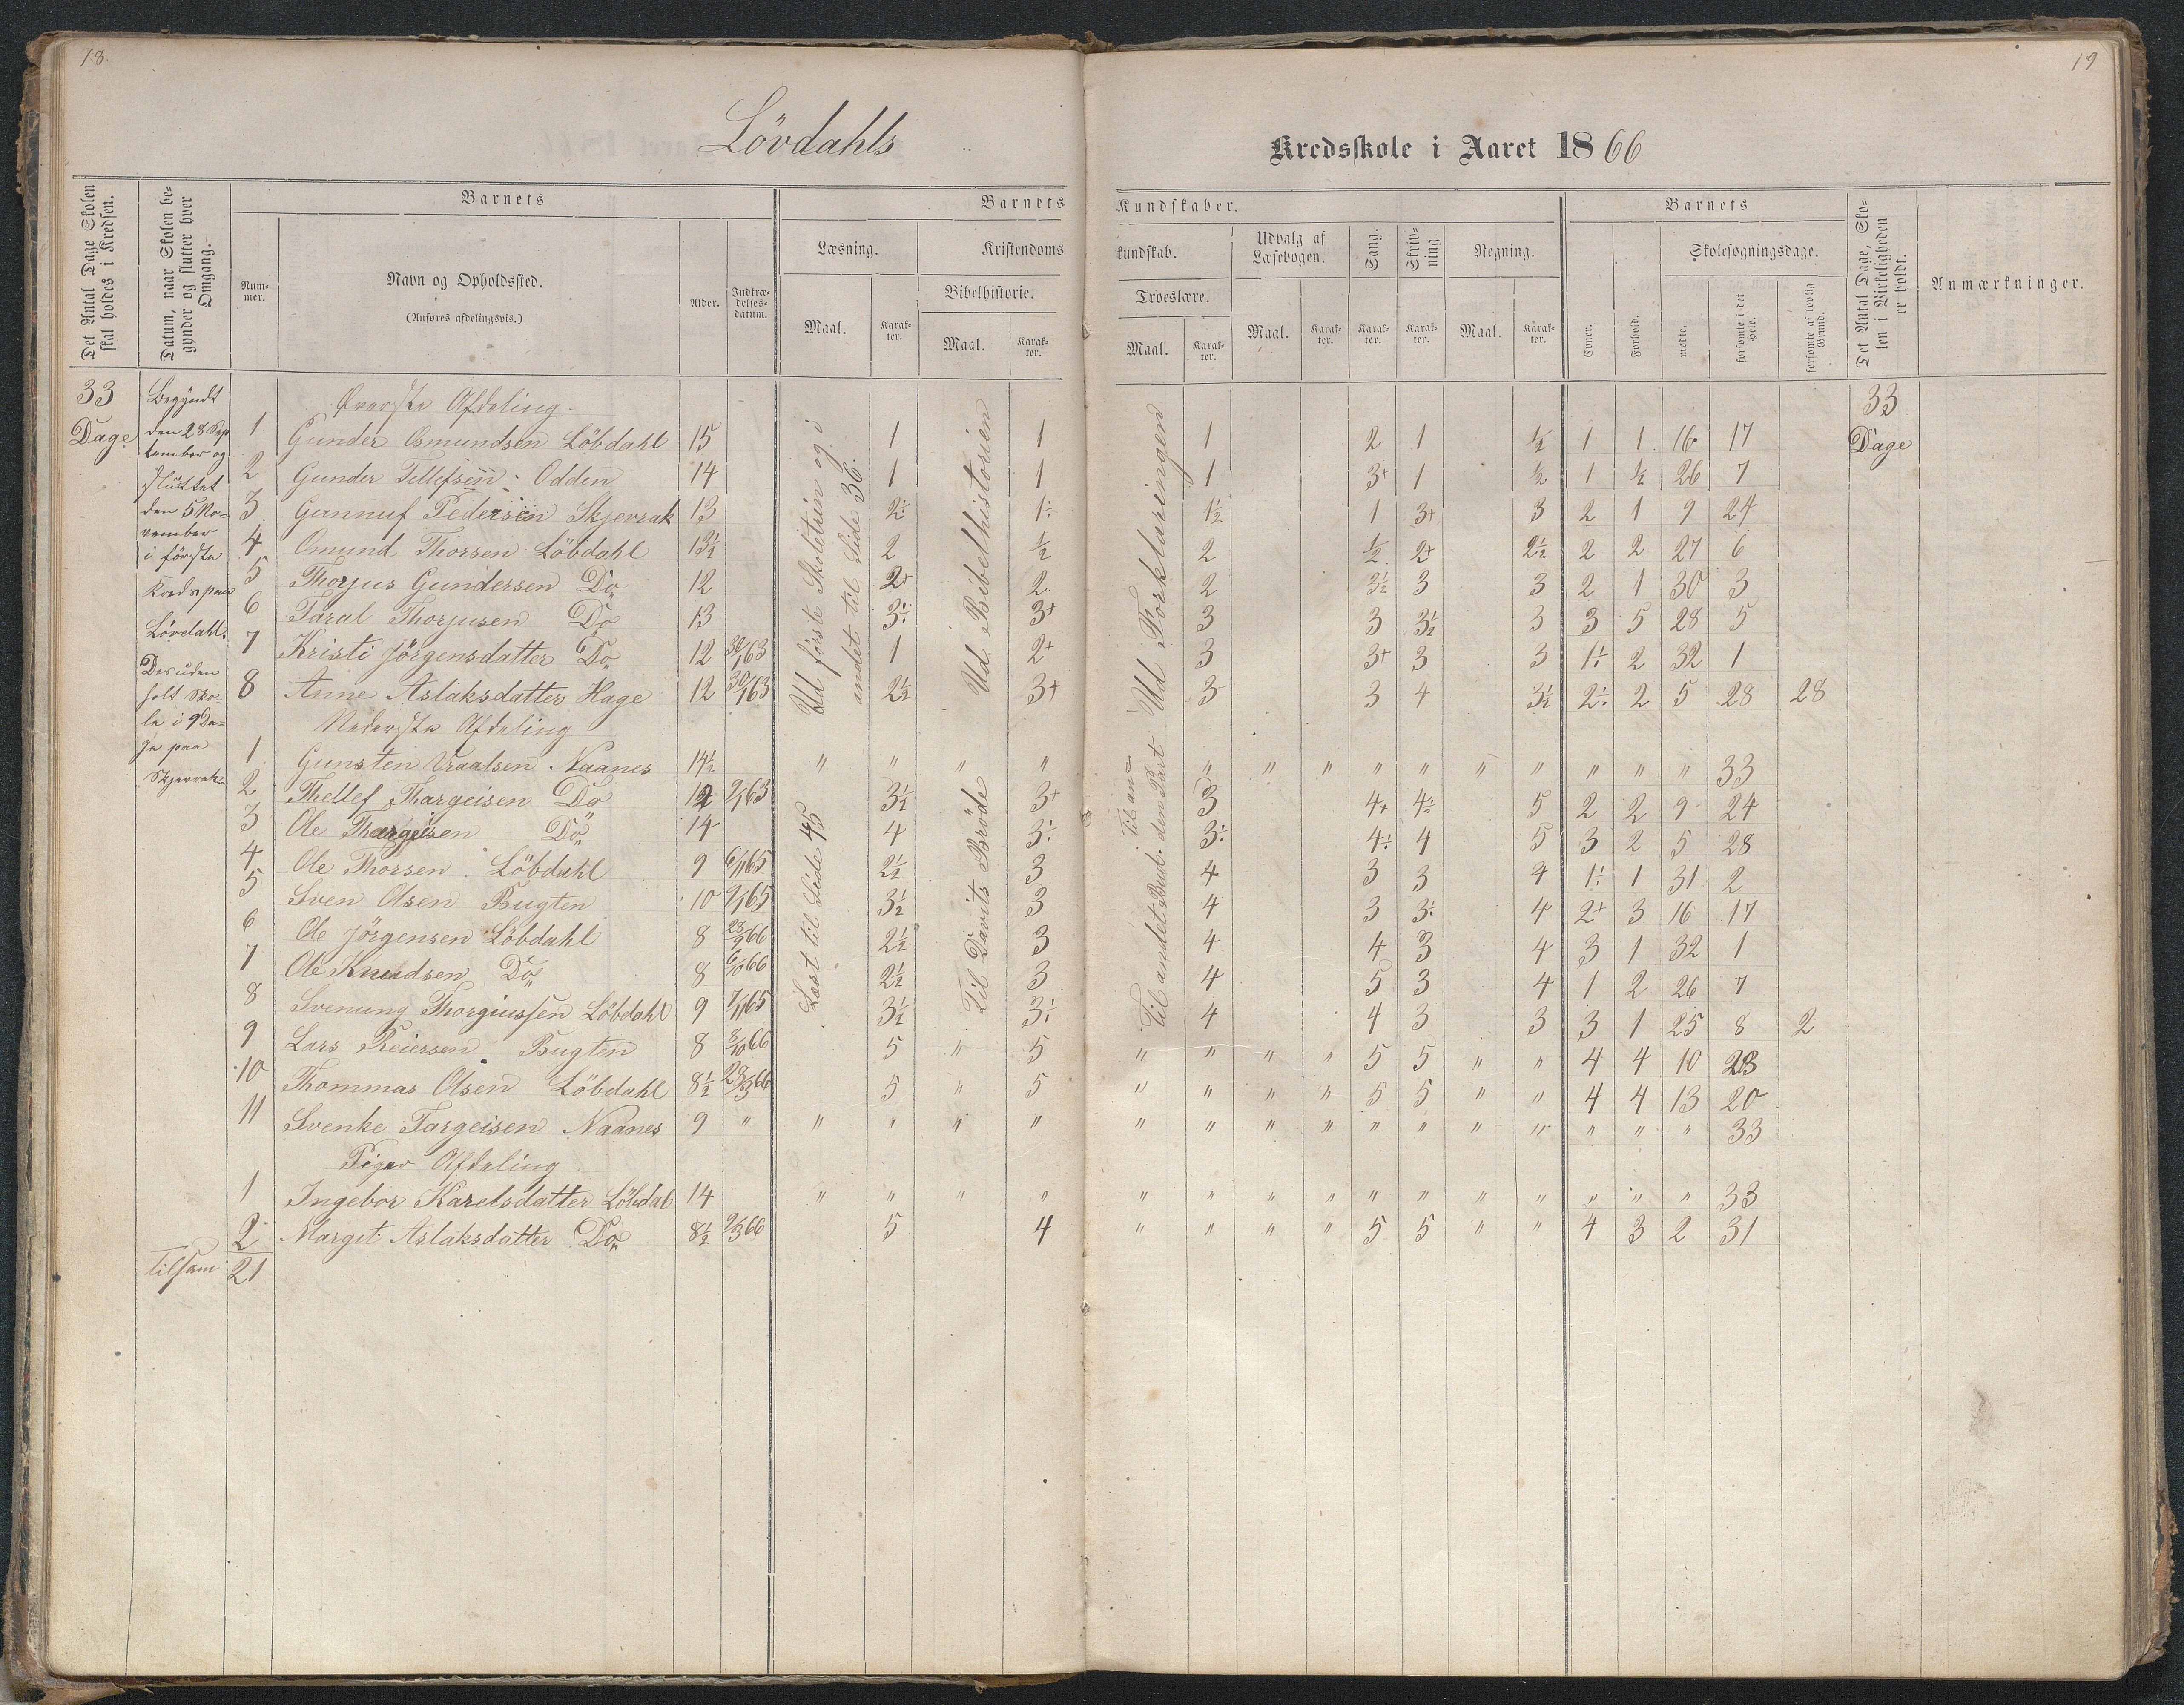 18.
19
Lövdahls
Kredsskole i Aaret 1866
Det Antal Dage Skolen skal holdes i Kredsen.
Datum, naar Skolen begynder og slutter hver Omgang.
Barnets
Barnets
Kundskaber.
Barnets
Det Antal Dage, Skolen i Virkeligheden er holdt.
Anmærkninger.
Nummer.
Navn og Opholdssted.
(Anføres afdelingsvis.)
Alder.
Indtrædelsesdatum.
Læsning.
Kristendoms
kundskab.
Udvalg af Læsebogen.
Sang.
Skrivning
Regning.
Evner.
Forhold.
Skolesøgningsdage.
Maal.
Karakter.
Bibelhistorie.
Maal.
Karakter.
Troeslære.
Maal.
Karakter.
Maal.
Karakter.
Karakter.
Karakter.
Maal.
Karakter.
mødte.
forsømte i det Hele.
forsømte af lovlig Grund.
33
Dage
Begyndt
den 28 Sep
tember og
sluttet
den 5 No-
vember
i förste
Kreds paa
Lövdahl.
Desuden
holt Sko-
le i 9 Da-
ge paa
Skjerrak
33
Dage
Ud förste Skoletrin og i
andet til Side 36.
Ud Bibelhistorien
Ud Forklaringen
Øverste Afdeling.
1 Gunder Osmundsen Löbdahl 15 1 1 1 2 1 ½ 1 1 16 17
2 Gunder Tellefsen Odden 14 1 1 1 3+ 1 ½ 1 ½ 26 7
3 Gunnuf Pedersen Skjerrak 13 2÷ 1÷ 1½ 1 3+ 3 2 1 9 24
4 Osmund Thorsen Löbdahl 13½ 2 ½ 2 ½ 2+ 2½ 2 2 27 6
5 Thorjus Gundersen Do 12 2+ 2 2 3½ 3 3 2 1 30 3
6 Taral Thorjusen Do 13 3÷ 3+ 3 3 3½ 3 3 5 28 5
7 Kristi Jörgensdatter Do 12 30/1 63 1 2+ 3 3+ 3 3 1÷ 2 32 1
8 Anne Aslaksdatter Hage 12 30/1 63 2½ 3+ 3 3 4 3½ 2÷ 2 5 28 28
Nederste Afdeling
Læst til Side 45
Til Davits Bröde
Til andet Bud. den Part til an=
1 Gunsten Vraalsen Naanes 14½ " " " " " " " " " " " " " " 33
2 Thellef Thargeisen Do 12 9/1 63 3½ 3+ 3 4+ 4÷ 5 2 2 9 24
3 Ole Thargeisen Do 14 4 3÷ 3÷ 4÷ 4 5 3 2 5 28
4 Ole Thorsen Löbdahl 9 6/1 65 2½ 3 4 3 3 4 1÷ 1 31 2
5 Sven Olsen Bugten 10 9/1 65 3½ 3 4 3 3÷ 4 2+ 3 16 17
6 Ole Jörgensen Löbdahl 8 28/9 66 2½ 3 4 4 3 4 3 1 32 1
7 Ole Knudsen Do 8 6/10 66 2½ 3 4 5 3 4 1 2 26 7
8 Svenung Thorgiussen Löbdahl 9 7/1 65 3½ 3÷ 4 4 3 3 3 1 25 8 2
9 Lars Reiersen Bugten 8 8/10 66 5 " 5 " " " " 5 5 " " 4 4 10 23
10 Thommas Olsen Löbdahl 8½ 28/3 66 5 " 5 " " " " 5 5 " " 4 4 13 20
11 Svenke Targeisen Naanes 9 " " " " " " " " " " " " " " " " 33
Piger Afdeling
1 Ingebor Karelsdatter Löbdal 14 " " " " " " " " " " " " " " " 33
2 Marget Aslaksdatter Do 8½ 9/3 66 5 4 " " " " 5 5 " " 4 3 2 31
tilsam 21